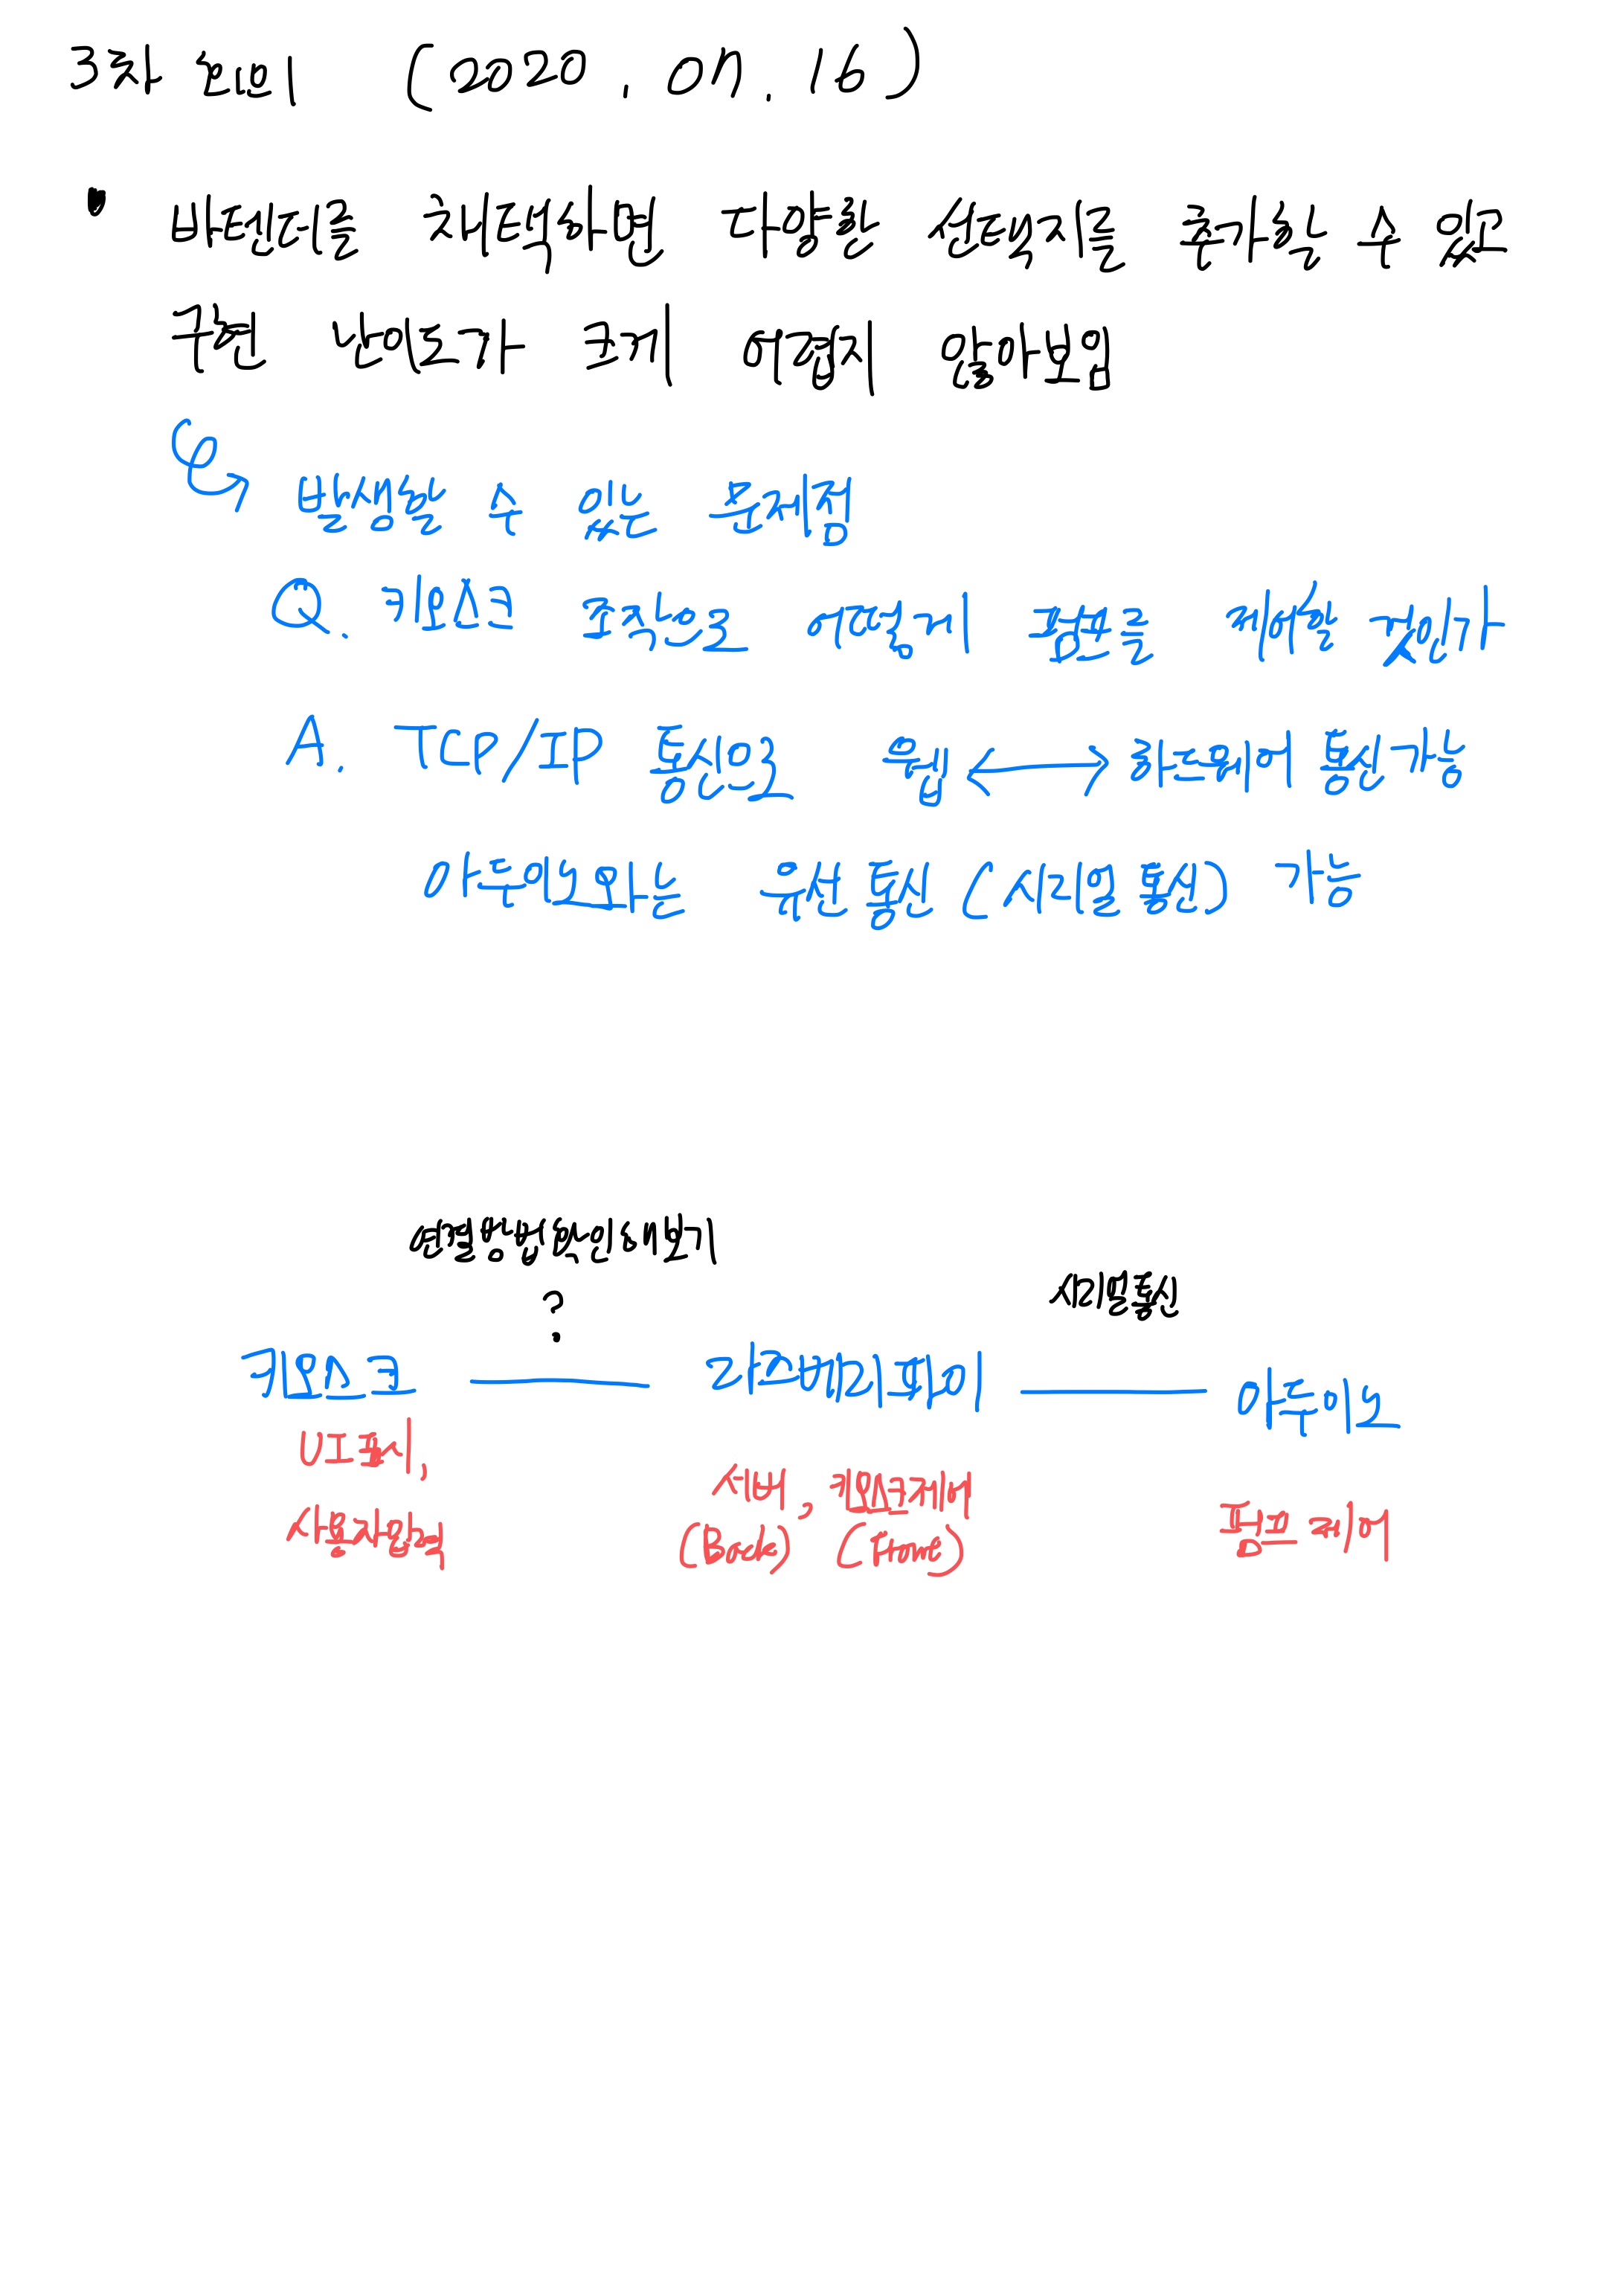 3차 회의 (2020. 07. 16)
바텐더를 채택하면 다양한 선택지를 추가할 수 있고
구현 난이도가 크게 어렵지 않아보임
발생할 수 있는 문제점
Q. 키오스크 조작으로 어떻게 펌프를 제어할 것인가
A. TCP/IP 통신으로 웹 ↔ 하드웨어 통신가능
아두이노와는 유선 통신 (시리얼통신) 가능
연결방법 확인해보기
?
시리얼통신
키오스크 — 라즈베리파이 — 아두이노
UI표시,
사용자입력
서버, 키오스크제어
(Back) (Front)
펌프 제어